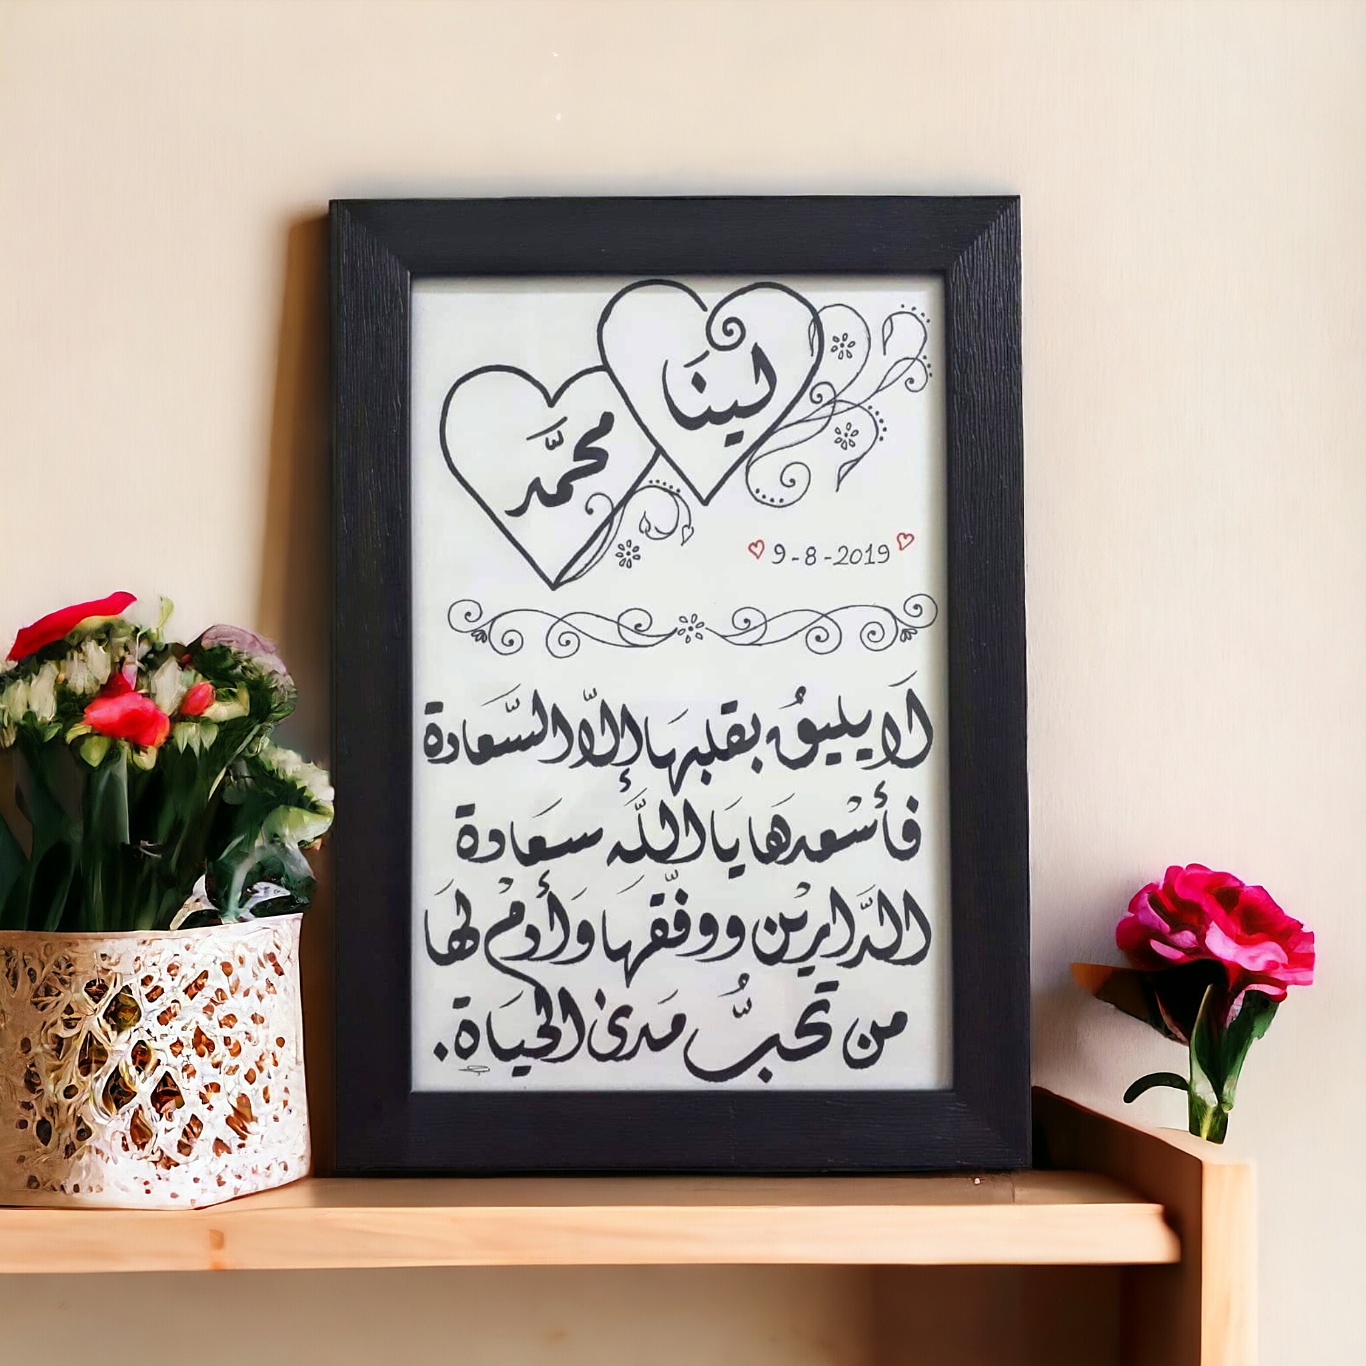 لينَا
محمَّد
9-8-2019
لَا يليقُ بقلبهَا إلّا السَّعَادة
فأسْعدهَا يَا اللَّه سعَادة
الدَّاريْن ووفّقهَا وَأدمْ لهَا
من تحبُّ مَدىٰ الحيَاة.